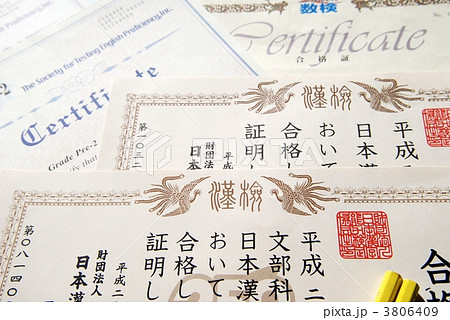 -2
The Society for Testing English Proficiency, Inc.
Certificate
Grade Pre-2
ify that
数検
Certificate
合格証
漢検
平成二
日本漢
おいて
合格し
証明し
平成
財団法
日本
漢検
合格
平成二
文部科
日本漢
おいて
合格し
証明し
平成二
財団法人
日本漢
第〇八一四〇
PIXTA
pixta.jp - 3806409